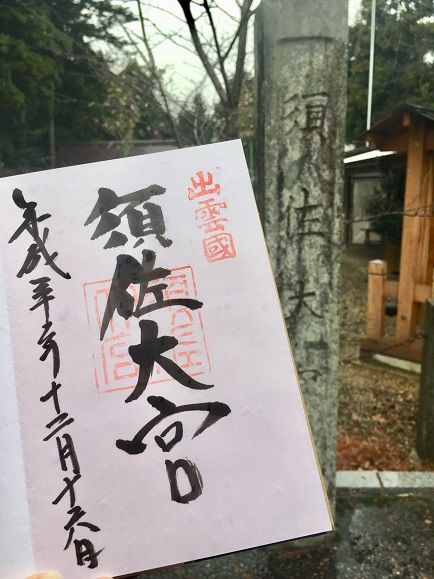 須佐大
出雲國
須佐大宮
平成 年十二月十六日